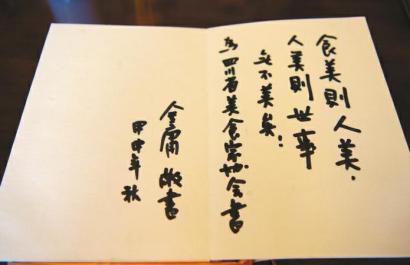 食美則人美．
人美則世事
無不美矣：
為四川省美食家协会書
金庸敬書
甲申年秋